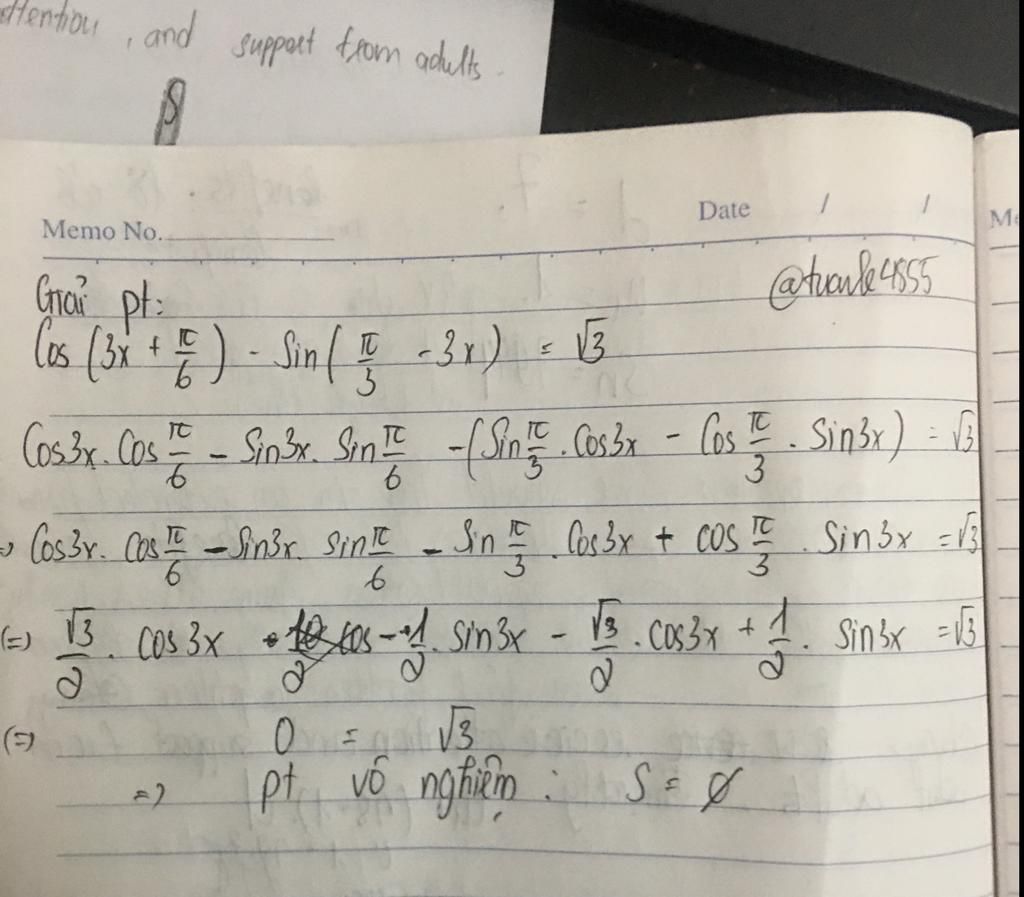 attention, and support from adults.
Memo No.
Date / /
Giải pt:
@tuanle4855
Cos (3x + π/6) - Sin (π/3 - 3x) = √3
Cos3x. Cos π/6 - Sin3x. Sin π/6 - (Sin π/3 . Cos3x - Cos π/3 . Sin3x) = √3
=> Cos3x. Cos π/6 - Sin3x. Sin π/6 - Sin π/3 . Cos3x + cos π/3 . Sin3x = √3
(=) √3/2 . cos3x - 1/2 . sin3x - √3/2 . cos3x + 1/2 . sin3x = √3
(=) 0 = √3
=> pt vô nghiệm : S = ∅